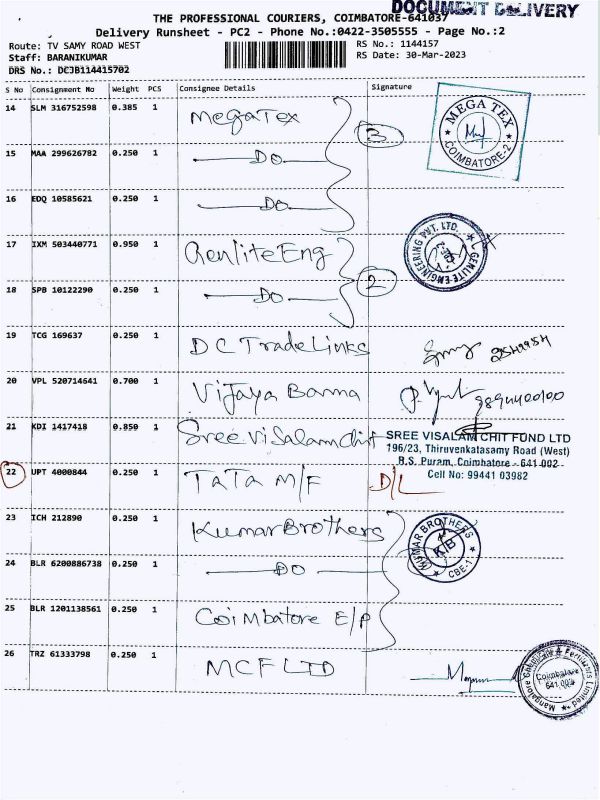 DOCUMENT DELIVERY
THE PROFESSIONAL COURIERS, COIMBATORE-641037
Delivery Runsheet - PC2 - Phone No.:0422-3505555 - Page No.:2
Route: TV SAMY ROAD WEST RS No.: 1144157
Staff: BARANIKUMAR RS Date: 30-Mar-2023
DRS No.: DCJB114415702
S No Consignment No Weight PCS Consignee Details Signature
14 SLM 316752598 0.385 1 MegaTex
3 MEGA TEX COIMBATORE-2
15 MAA 299626782 0.250 1 DO
16 EDQ 10585621 0.250 1 DO
17 IXM 503440771 0.950 1 Genlite Eng GENLITE ENGINEERING PVT. LTD.
18 SPB 10122290 0.250 1 DO 2
19 TCG 169637 0.250 1 DC TradeLinks
20 VPL 520714641 0.700 1 Vijaya Barma
21 KDI 1417418 0.850 1 Sree Visalam Chit SREE VISALAM CHIT FUND LTD
196/23, Thiruvenkatasamy Road (West)
R.S. Puram, Coimbatore - 641 002
Cell No: 99441 03982
22 UPT 4000844 0.250 1 TaTa M/F D/L
23 ICH 212890 0.250 1 Kumar Brothers KUMAR BROTHERS K/B CBE-1
24 BLR 6200886738 0.250 1 DO
25 BLR 1201138561 0.250 1 Coimbatore E/P
26 TRZ 61333798 0.250 1 MCF LTD Mangalore Chemicals & Fertilizers Limited Coimbatore 641 002